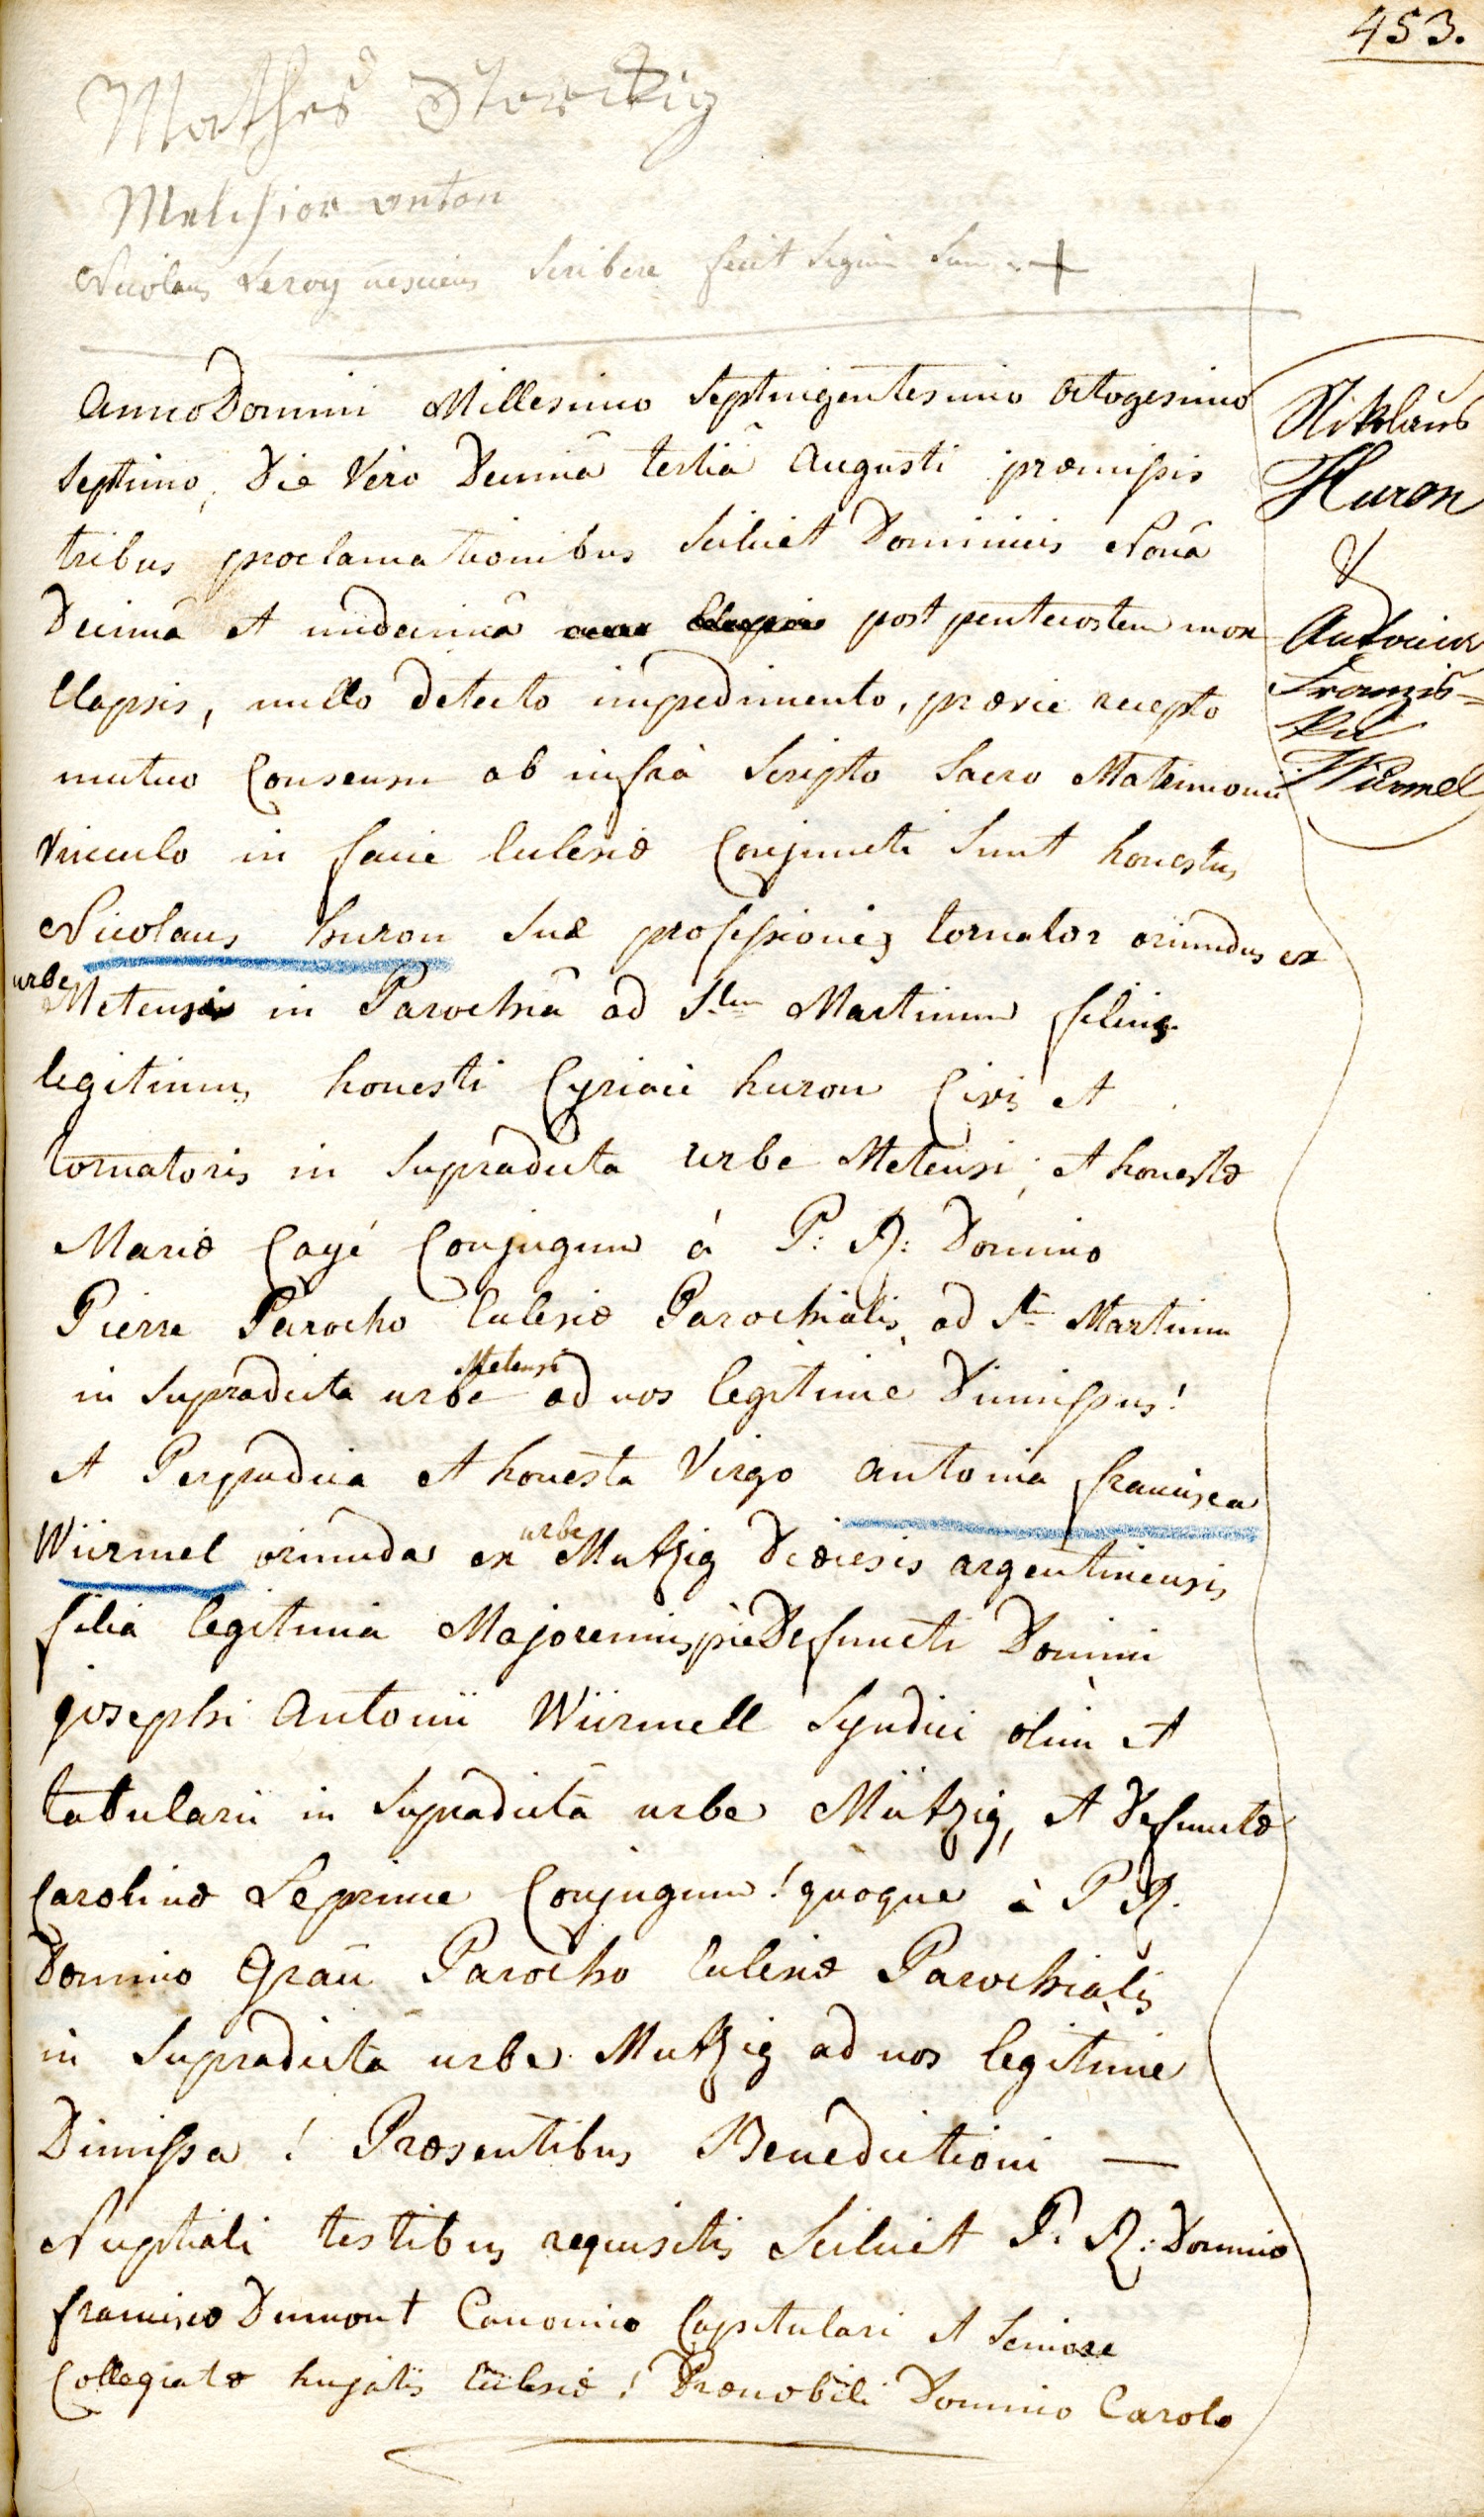 453.
Mathes Storckig
Melchior anton
Nicolaus Leroy nesciens scribere fecit signum suum +
Anno Domini Millesimo septuigentesimo octogesimo
septimo, Die Vero Decimâ tertiâ Augusti præmissis
tribus proclamationibus scilicet Dominicis Nonâ
Decimâ et undecimâ post pentecostem mox
Elapsis, nullo detecto impedimento, prævie recepto
mutuo Consensu ab infrà scripto sacro Matrimonii
Vinculo in facie Eclesiæ Conjuncti sunt honestus
Nicolaus huron suæ professionis tornator oriundus ex
urbe Metensi in Parochiâ ad Stum Martinum filius
legitimus honesti Cyriaci huron Civis et
tornatoris in supradicta urbe Metensi, et honestæ
Mariæ Cayé Conjugum à P: R: Domino
Pierre Parocho Eclesiæ Parochialis ad St Martinum
in supradicta urbe Metensi ad nos legitime Dimissus!
et Perpudica et honesta Virgo antonia francisca
Würmel oriunda ex urbe Mutzig Diœcesis argentinensis
filia legitima Majorennis, piè Defuncti Domini
josephi Antonii Würmell Syndici olim et
tabularii in supradictâ urbe Mützig, et Defunctæ
Carolinæ Leprince Conjugum! quoque à P R.
Domino Graü Parocho Eclesiæ Parochialis
in supradictâ urbe Mutzig ad nos legitime
Dimissa! Præsentibus Benedictioni —
Nuptiali testibus requisitis scilicet P. R: Domino
francisco Dumont Canonico Capitulari et Seniore
Collegiatæ hujatis Eclesiæ! Prænobili Domino Carolo
Nikolaus
Huron
&
Antonia
Franzis=
ka
Würmel